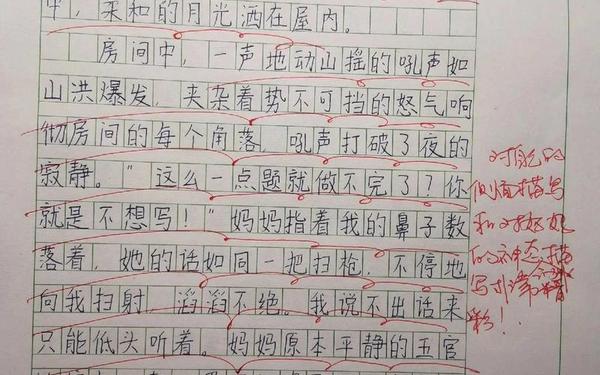 中，柔和的月光洒在屋内。
房间中，一声地动山摇的吼声如
山洪爆发，夹杂着势不可挡的怒气响
彻房间的每个角落，吼声打破了夜的
寂静。“这么一点题就做不完了？你
就是不想写！”妈妈指着我的鼻子数
落着，她的话如同一把扫枪，不停地
向我扫射，滔滔不绝。我说不出话来
只能低头听着。妈妈原本平静的五官
侧面描写
和对妈妈
的神态描
写非常精
彩！